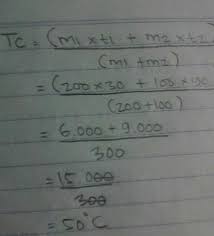 TC = (m1 x t1 + m2 x t2)
(m1 + m2)
= (200 x 30 + 100 x
(200 + 100)
= 6.000 + 9.000
300
= 15.000
300
= 50°C